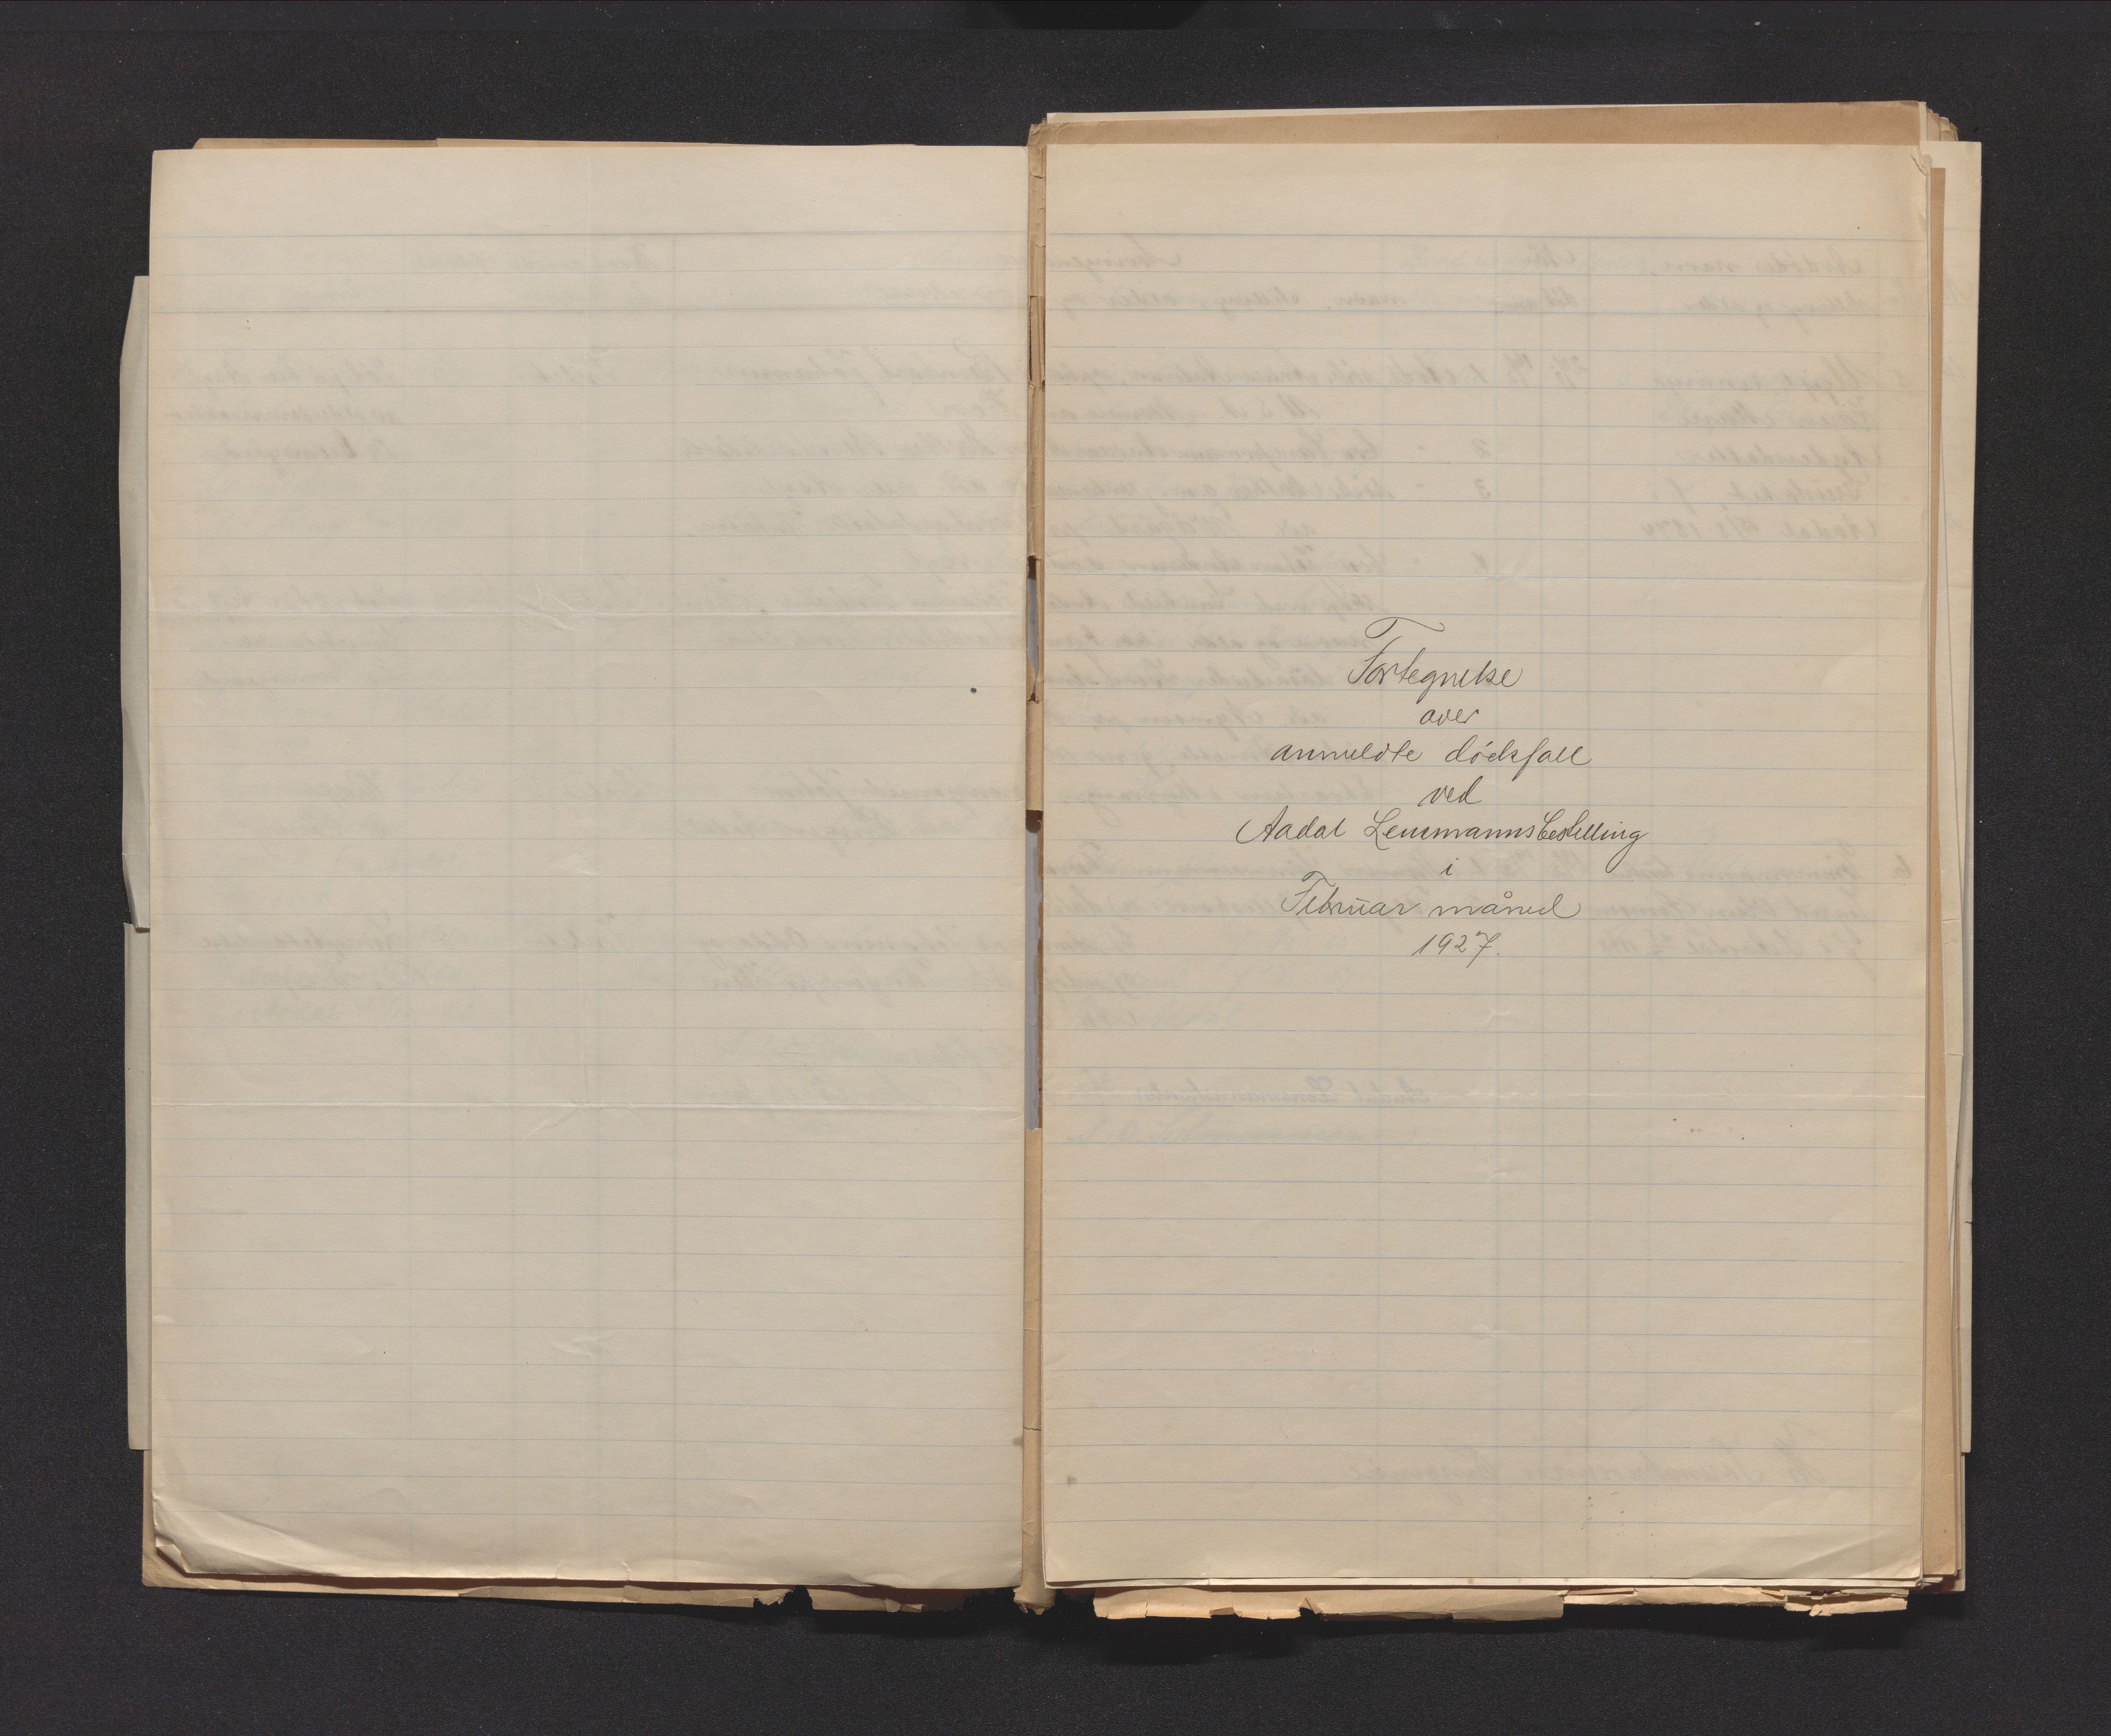 Fortegnelse
over
anmeldte dödsfall
ved
Aadal Lensmannsbestilling
i
Februar måned
1927.